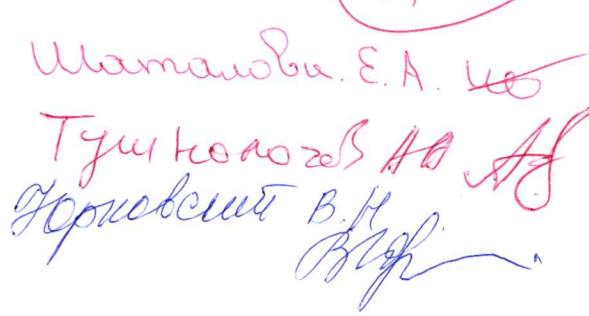 Шаталова Е.А.
Тушнологов АА
Юрковский В.Н